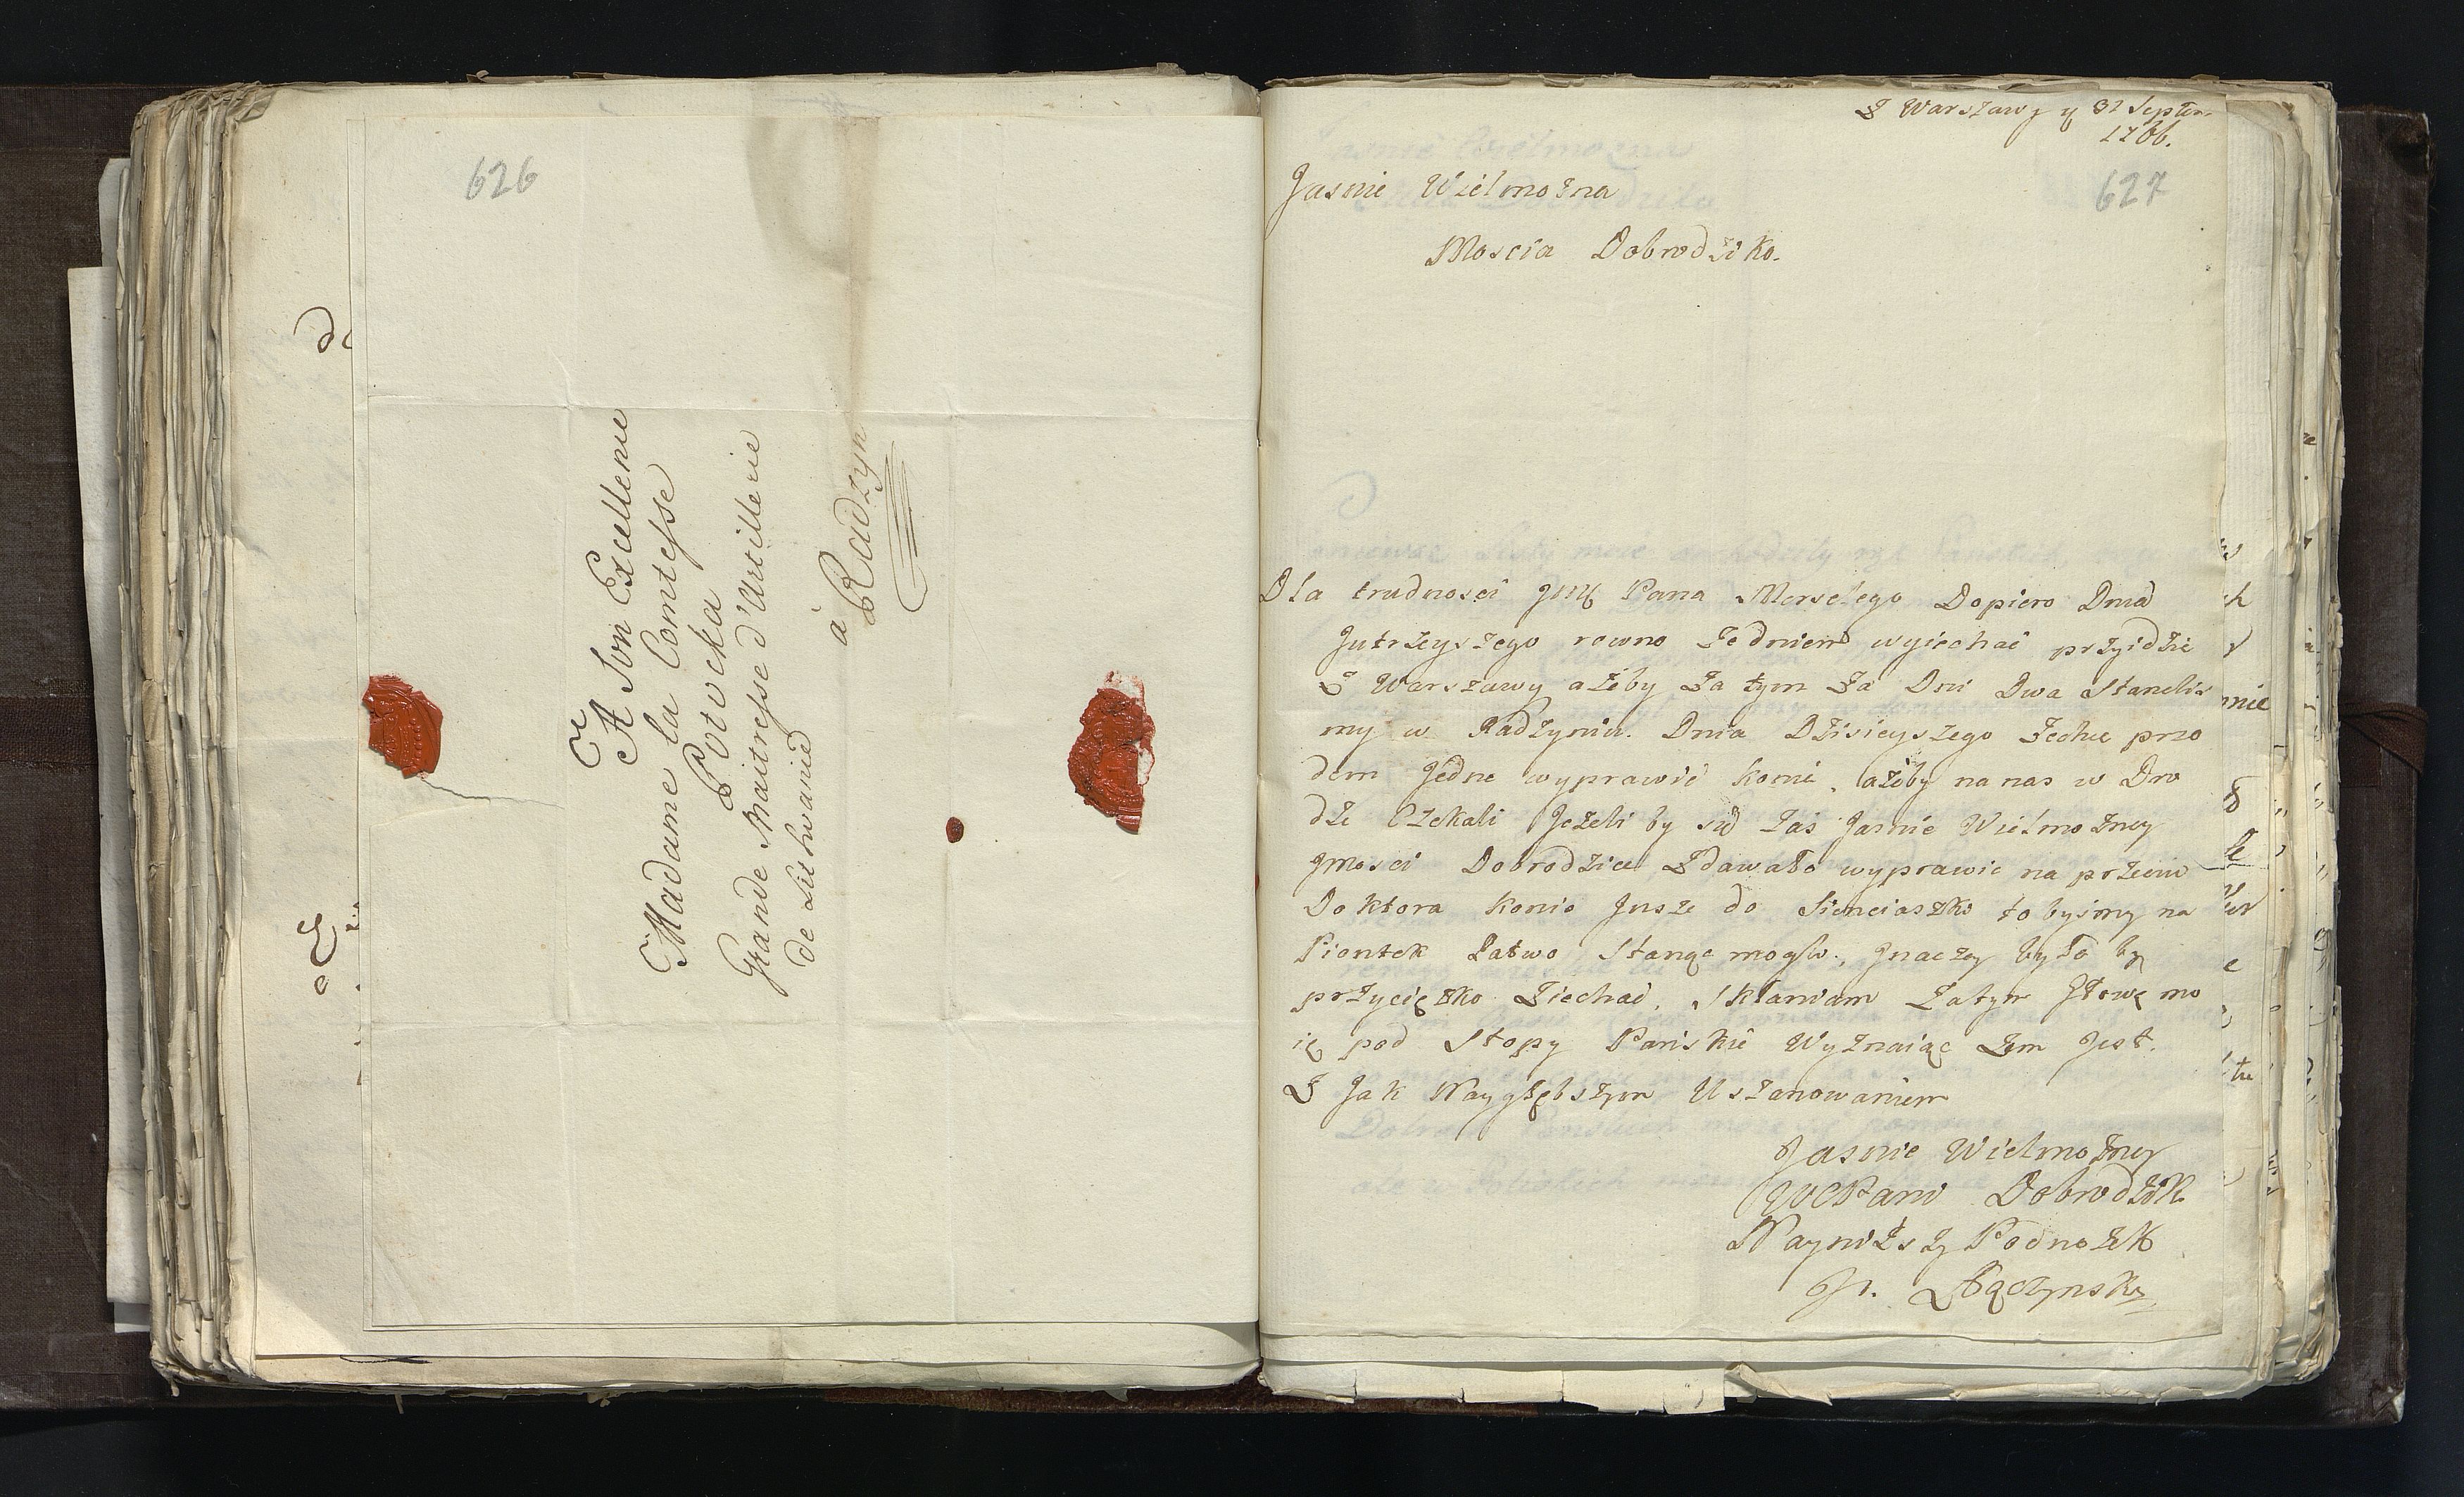 626
A Son Excellence
Madame la Comtesse
Potocka
Grande Maitresse d'Artillerie
de Lithuanie
à Radzyn
Z Warszawy
627
Jasnie Wielmozna
Moscia Dobrodziko.
Dla trudnosci Jmć Pana Dopiero Dnia
Jutrzeyszego rowno ze dniem wyiechać przyidzie
Z Warszawy ażeby za tym za Dni Dwa Staneliś
my w Radzyniu. Dnia Dzisieyszego Zechce przo
dem Jedne wyprawić konie, ażeby na nas w Dro
dze Czekali Jeżeli by się zaś Jasnie Wielmożney
Jmosci Dobrodzice Zdawało wyprawic na przeciw
Doktora konie Jusze do to byśmy na
Piontek Łatwo Stanąc mogli. Jnaczey było by
przycięzko Ziechać. Skłaniam Zatym Głowę mo
ię pod Stopy Pańskie Wyznaiąc Zem Jest.
Z Jak Naygłębszym Uszanowaniem
Jasnie Wielmożney
WCPani Dobrodzik
Nayniższy Podnożek
Łączynski